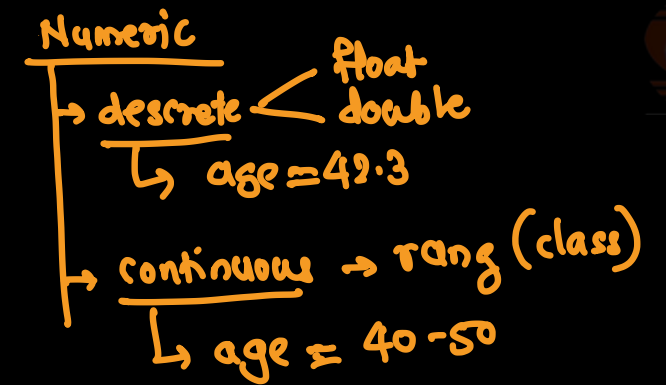 Numeric
→ descrete < float
double
↳ age = 42.3
→ continuous → rang (class)
↳ age = 40-50